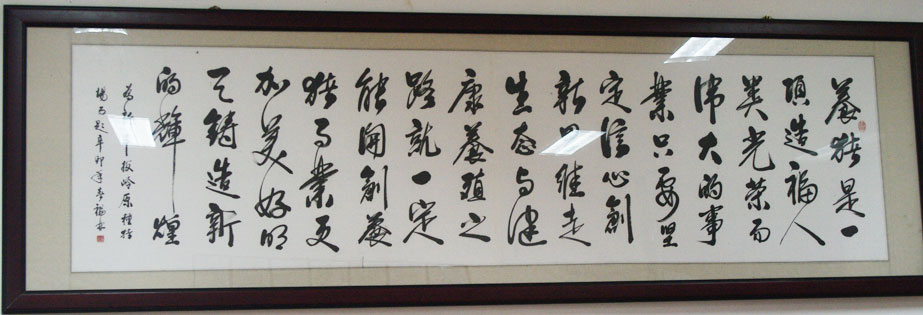 養猪是一
项造福人
类光荣而
伟大的事
業只要坚
定信心創
新思维走
生态与健
康養殖之
路就一定
能開創養
猪事業更
加美好明
天鑄造新
的輝煌
板岭原种猪
场 题辛卯年春